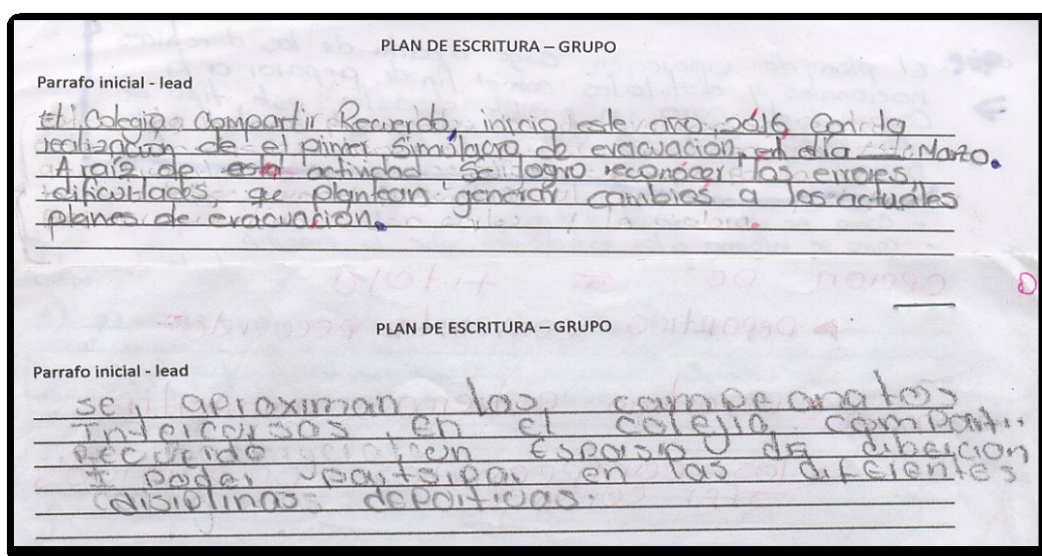 PLAN DE ESCRITURA – GRUPO
Parrafo inicial - lead
El Colegio Compartir Recuerdo, inicio este año 2016 con la
realización de el primer simulacro de evacuacion, el día ___ Marzo.
A raíz de esta actividad se logro reconocer las errores,
dificultades, que plantean generar cambios a los actuales
planes de evacuación.
PLAN DE ESCRITURA – GRUPO
Parrafo inicial - lead
se aproximan los campeonatos
Intercursos en el colejio comparti..
Recuerdo un Espasio de
I poder partsipar en las
disiplinas deportivas